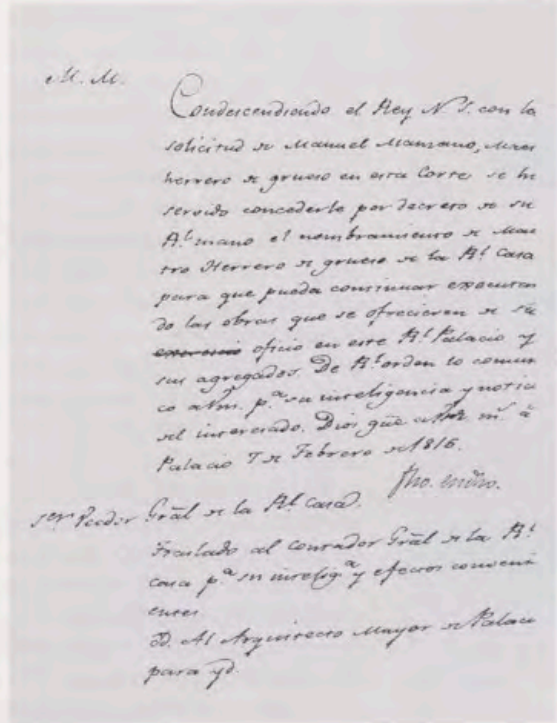 M. M.
Condescendiendo el Rey N. S. con la
solicitud de Manuel Manzano, Maes
herrero de grueso en esta Corte se ha
servido concederle por decreto de su
Rl. mano el nombramiento de Maes
tro Herrero de grueso de la Rl. Casa
para que pueda continuar executan
do las obras que se ofrecieren de su
exercicio oficio en este Rl. Palacio y
sus agregados. De Rl. orden lo comuni
co a Vm. pa. su inteligencia y noticia
del interesado. Dios güe a Vm. ms. as.
Palacio 7 de Febrero de 1816.
Sor. Veedor Gral de la Rl. Casa.
Traslado al Contador Gral de la Rl.
casa pa. su inteliga. y efectos conveni
entes
Id. Al Arquitecto Mayor de Palacio
para yd.